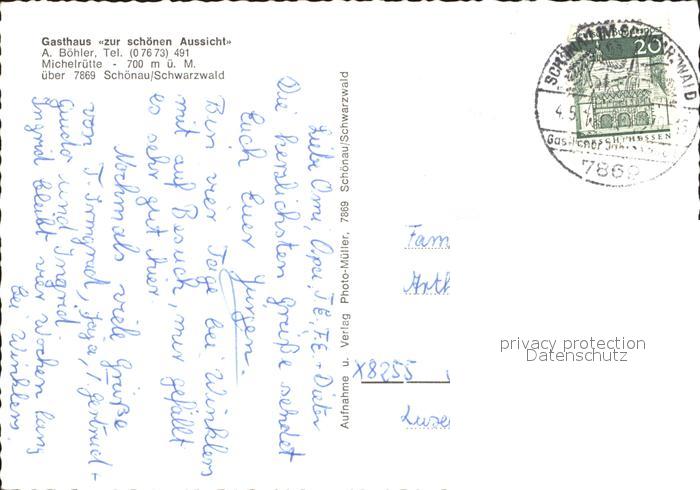 Gasthaus «zur schönen Aussicht»
A. Böhler, Tel. (0 76 73) 491
Michelrütte - 700 m ü. M.
über 7869 Schönau/Schwarzwald
Liebe Omi, Opa, T.E., F.E. + Dieter
Die herzlichsten Grüße sendet
Euch Euer Jürgen.
Bin vier Tage bei Winklers
mit auf Besuch, mir gefällt
es sehr gut hier
Nochmals viele Grüße
von T. Irmgrad, Jaga, T. Gertrud +
Guido und Ingrid
Ingrid bleibt vier Wochen lang
bei Winklers.
Aufnahme u. Verlag Photo-Müller, 7869 Schönau/Schwarzwald
20
SCHÖNAU IM SCHWARZWALD
4.5.
7869
Fam
Arth
X8255
Luxe
privacy protection
Datenschutz